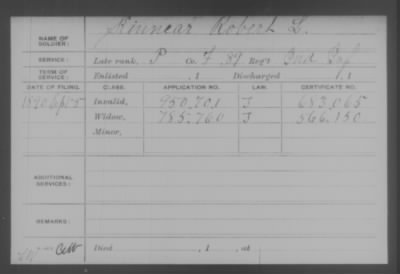 NAME OF SOLDIER: Kinnear Robert L.
SERVICE: Late rank, P Co. F, 89 Reg't Ind Inf
TERM OF SERVICE: Enlisted , 1 Discharged , 1
DATE OF FILING. CLASS. APPLICATION NO. LAW. CERTIFICATE NO.
1890 5 Invalid, 950,701 J 683,065
Widow, 785,760 J 566,150
Minor,
ADDITIONAL SERVICES:
REMARKS:
Died , 1 , at